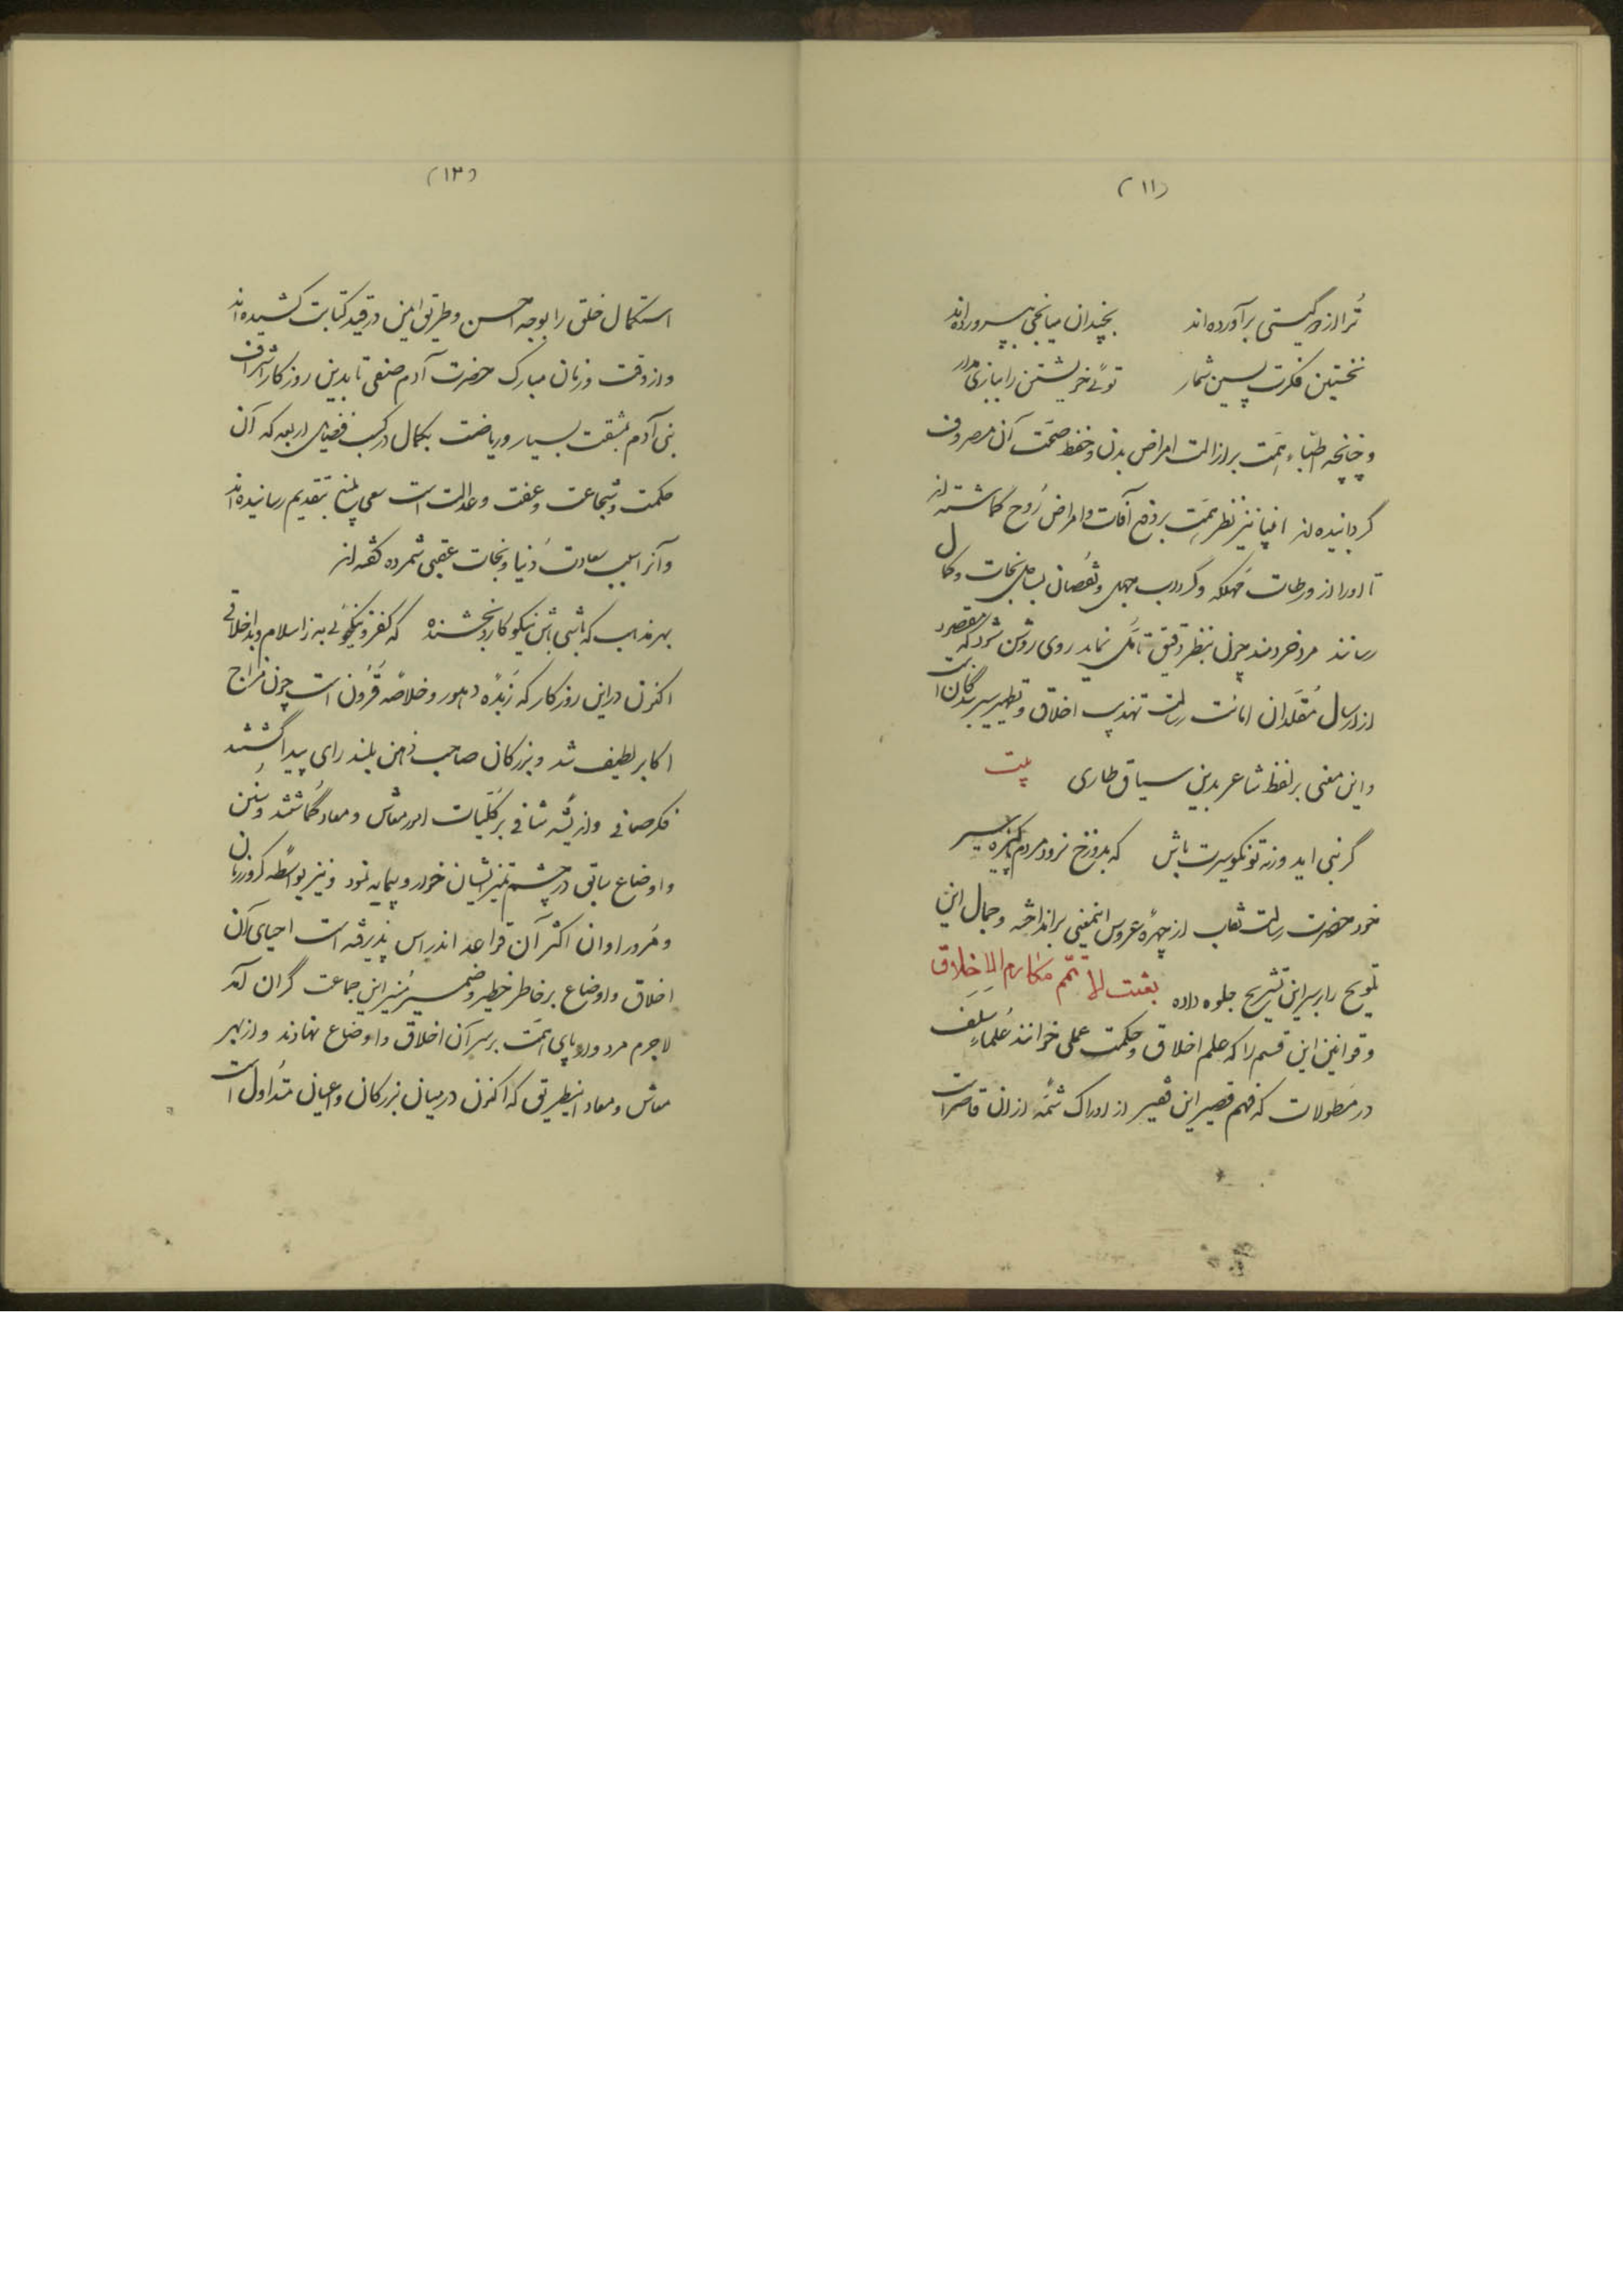 (۱۱)
ترا از دو گیتی برآورده‌اند بچندان میانجی بپرورده‌اند
نخستین فکرت پسین شمار توئی خویشتن را ببازی مدار
و چنانچه اطبّاء همّت بر ازالت امراض بدن و حفظ صحّت آن مصروف
گردانیده‌اند انبیا نیز نظر همّت بر دفع آفات و امراض رُوح گماشته‌اند
تا او را از ورطات مُهلکه و گرداب جهل و نُقصان بساحل نجات و کمال
رسانند مرد خردمند چون بنظر دقیق تأمّل نماید روی روشن شود که مقصود
از ارسال مُقلّدان امانت رسالت تهذیب اخلاق و تطهیر سیر بندگان است
و این معنی بر لفظ شاعر بدین سیاق طاری بیت
گر نبی اید ورنه تو نکوسیرت باش که بدوزخ نرود مردم پاکیزه سیر
خود حضرت رسالت نقاب از چهرهٔ عروس اینمعنی برانداخته و جمال این
تلویح را بر سر این تشریح جلوه داده بعثت لاتمّم مکارم الاخلاق
و قوانین این قسم را که علم اخلاق و حکمت عملی خوانند عُلماءِ سلف
در مطولات که فهم قصیر این فقیر از ادراک شمّهٔ از ان قاصر است
(۱۲)
استکمال خلق را بوجه احسن و طریق ایمن در قید کتابت کشیده‌اند
و از وقت و زمان مبارک حضرت آدم صفی تا بدین روزکار اشراف
بنی آدم بمشقت بسیار و ریاضت بکمال در کسب فضیل اربعه که آن
حکمت و شجاعت و عفت و عدالت است سعی بلیغ بتقدیم رسانیده‌اند
و آنرا سبب سعادت دُنیا و نجات عقبی شمرده گفته‌اند
بهر مذهب که باشی باش نیکوکار و بخشنده که کفر و نیکوئی به ز اسلام و بداخلاقی
اکنون در این روزکار که زُبدهٔ دهور و خلاصهٔ قُرُون است چون مزاج
اکابر لطیف شد و بزرکان صاحب ذهن بلند رای پیدا گشتند
فکر صافی و اندیشهٔ شافی بر کُلیّات امور معاش و معاد گُماشتند و سُنن
و اوضاع سابق در چشم تمیز ایشان خوار و بیمایه نمود و نیز بواسطهٔ کرور زمان
و مُرور اوان اکثر آن قواعد اندراس پذیرفته است احیای آن
اخلاق و اوضاع بر خاطر خطیر و ضمیر مُنیر این جماعت گران آمد
لاجرم مردوار پای همّت بر سر آن اخلاق و اوضاع نهادند و از بهر
معاش و معاد اینطریق که اکنون در میان بزرکان و اعیان متداول است